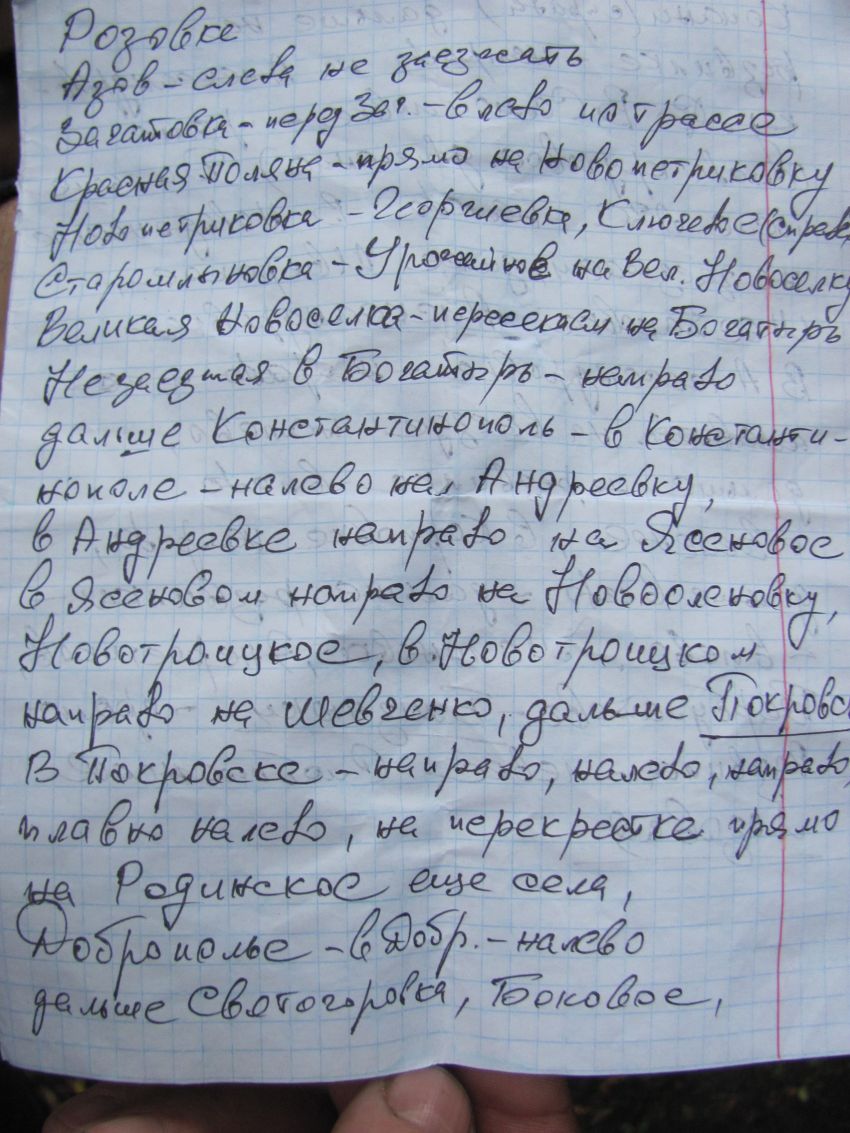 Розовке
Азов - слева не заезжать
Зачатовка - перед Зач. - влево по трассе
Красная Поляна - прямо на Новопетриковку
Новопетриковка - Георгиевка, Ключевое (справа
Старомлыновка - Урожайное на Вел. Новоселку
Великая Новоселка - пересекаем на Богатырь
Не заезжая в Богатырь - направо
дальше Константинополь - в Константи-
нополе - налево на Андреевку,
в Андреевке направо на Ясеновое
в Ясеновом направо на Новооленовку,
Новотроицкое, в Новотроицком
направо на Шевченко, дальше Покровск
В Покровске - направо, налево, направо,
плавно налево, на перекрестке прямо
на Родинское еще села,
Доброполье - в Добр. - налево
дальше Святогоровка, Боковое,